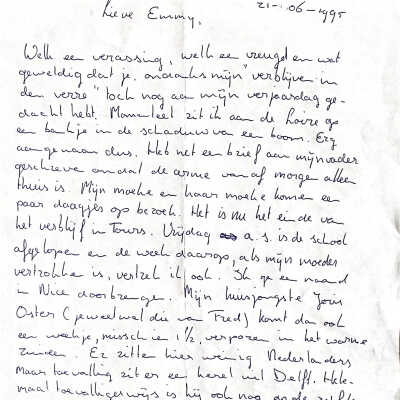 21-06-1995
Lieve Emmy,
Welk een verassing, welk een vreugd en wat
geweldig dat je, ondanks mijn "verblijven in
den verre" toch nog aan mijn verjaardag ge-
dacht hebt. Momenteel zit ik aan de Loire op
een bankje in de schaduw van een boom. Erg
aangenaam dus. Heb net een brief aan mijn vader
geschreven omdat de arme vanaf morgen alleen
thuis is. Mijn moeke en haar moeke komen een
paar daagjes op bezoek. Het is nu het einde van
het verblijf in Tours. Vrijdag a.s. is de school
afgelopen en de week daarop, als mijn moeder
vertrokken is, vertrek ik ook. Ik ga een maand
in Nice doorbrengen. Mijn huisjongste Joris
Oster (je weet wel die van Fred) komt dan ook
een weekje, misschien 1½, verpozen in het warme
zuiden. Er zitten hier weinig Nederlanders
Maar toevallig zit er een kerel uit Delft. Hele-
maal toevalligerwijs is hij ook nog